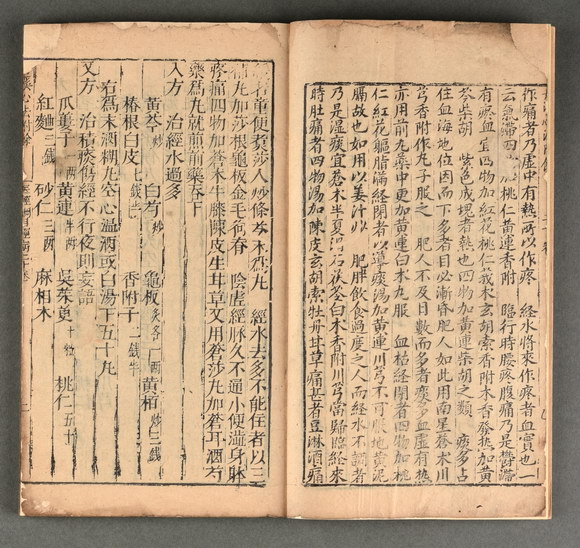 作痛者乃虛中有熱所以作疼 經水將來作疼者血實也一
云氣滯四物加桃仁黃連香附 臨行時腰疼腹痛乃是鬱滯
有瘀血宜四物加紅花桃仁莪朮玄胡索香附木香發熱加黃
芩柴胡 紫色成塊者熱也四物加黃連柴胡之類 痰多占
住血海地位因而下多者目必漸昏肥人如此用南星蒼朮川
芎香附作丸子服之 肥人不及日數而多者痰多血虛有熱
亦用前丸藥中更加黃連白朮丸服 血枯經閉者四物加桃
仁紅花軀脂滿經閉者以導痰湯加黃連川芎不可服地黃泥
膈故也如用以姜汁炒 肥胖飲食過度之人而經水不調者
乃是溼痰宜蒼朮半夏滑石茯苓白朮香附川芎當歸臨經來
時肚痛者四物湯加陳皮玄胡索牡丹甘草痛甚者豆淋酒痛
者童便煮莎入炒條芩末為丸 經水去多不能住者以三
補丸加莎根龜板金毛狗脊 陰虛經脈久不通小便澁身體
疼痛四物加蒼朮牛膝陳皮生甘草又用蒼莎丸加蒼耳酒芍
藥為丸就煎前藥吞下
又方 治經水過多
黃芩炒 白芍炒 龜板炙各一兩 黃栢炒三錢
椿根白皮七錢 香附子二錢半
右為末酒糊丸空心溫酒或白湯下五十丸
又方 治積痰傷經不行夜則妄語
瓜蔞子一兩 黃連半兩 吳茱萸十粒 桃仁五十
紅麯二錢 砂仁三兩 麻相木